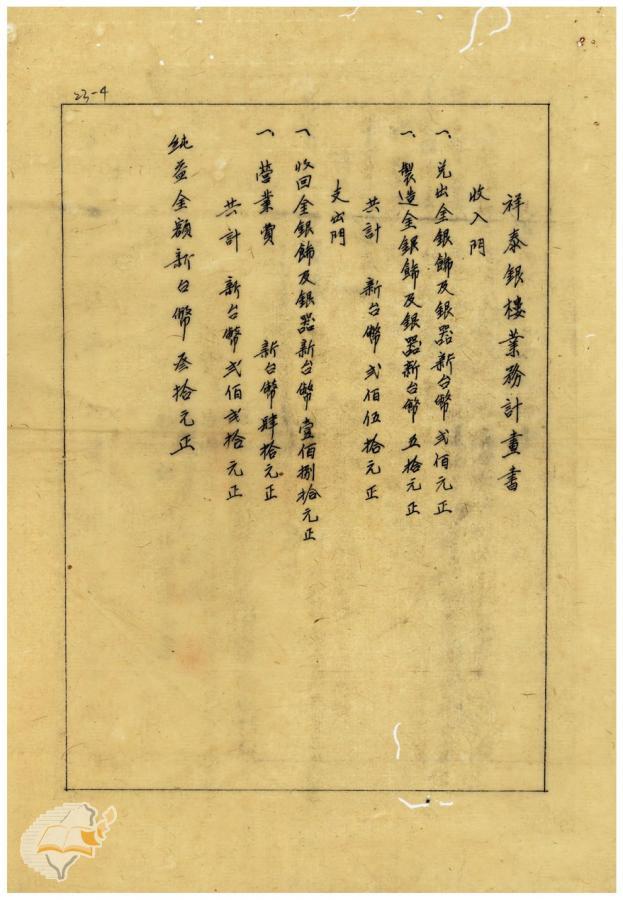 23-4
祥泰銀樓業務計畫書
收入門
一、兌出金銀飾及銀器新台幣貳佰元正
一、製造金銀飾及銀器新台幣五拾元正
共計 新台幣貳佰伍拾元正
支出門
一、收回金銀飾及銀器新台幣壹佰捌拾元正
一、營業費 新台幣肆拾元正
共計 新台幣貳佰貳拾元正
純益金額新台幣叁拾元正